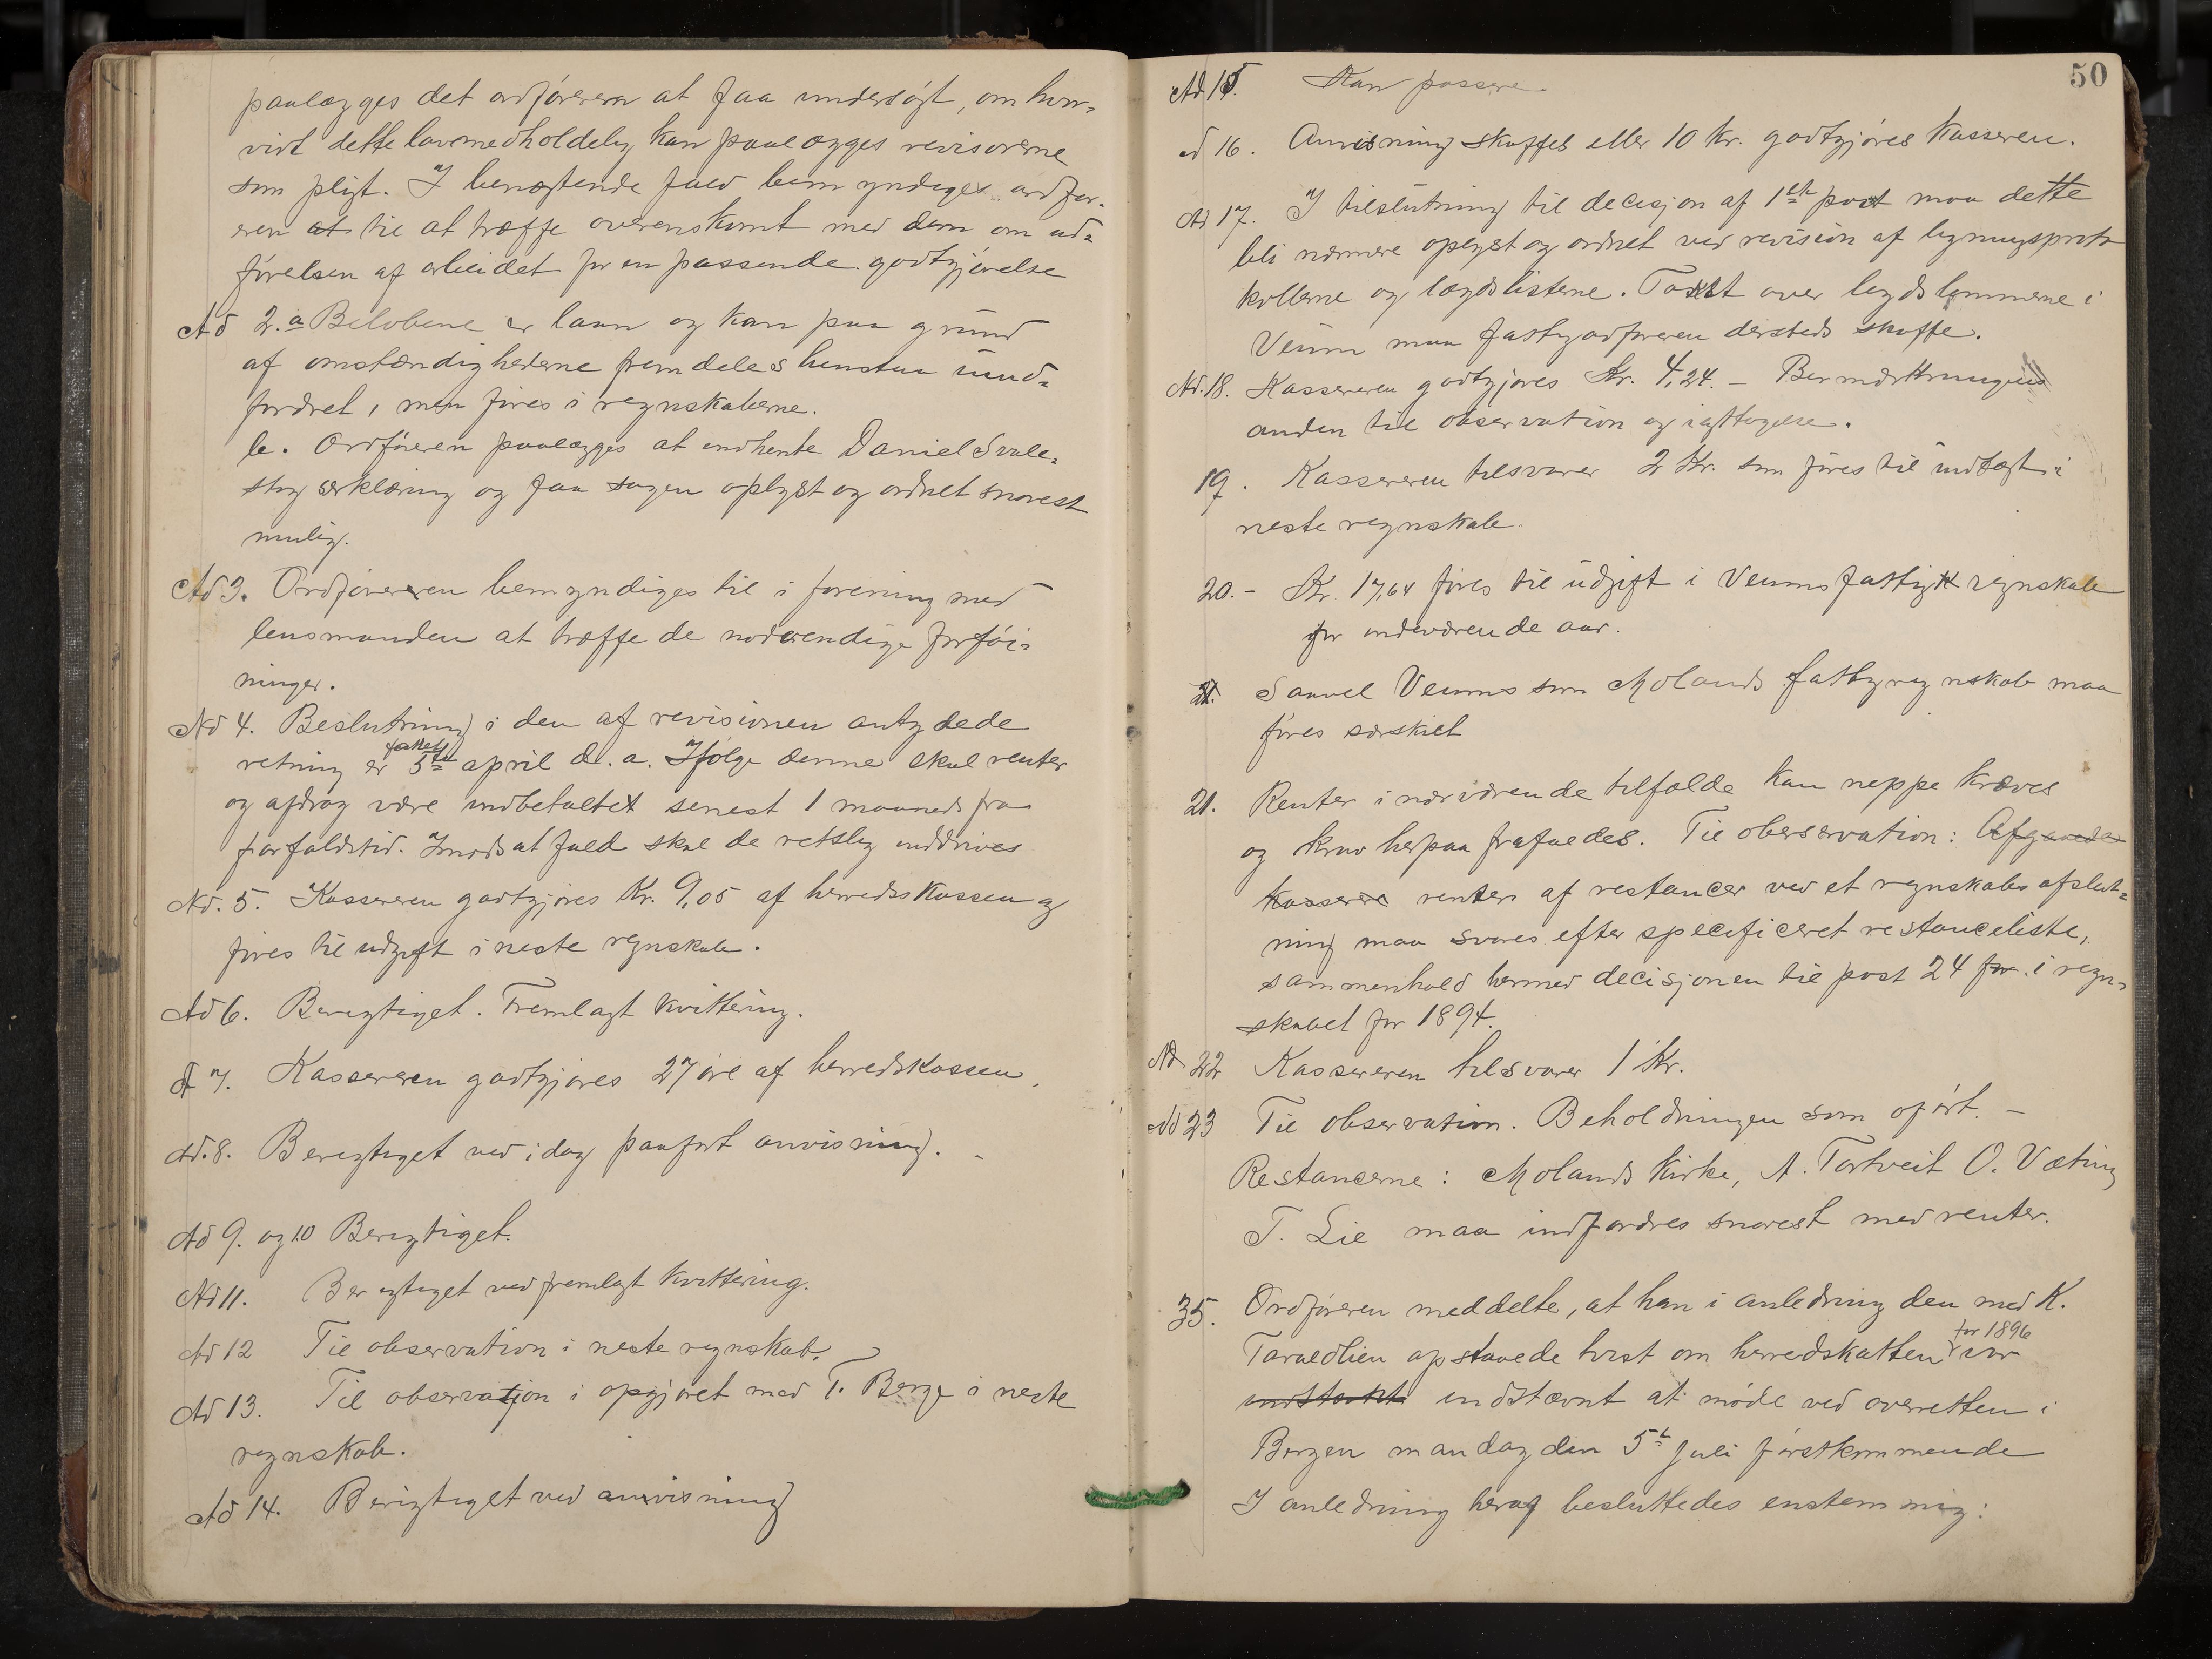 paalægges det ordføreren at faa undersøgt, om hvor-
vidt dette lovmedholdelig kan paalægges revisorerne
som pligt. I benægtende fald bemyndiges ordfør-
eren at til at træffe overenskomst med dem om ud-
førelsen af arbeidet for en passende godtgjørelse
Ad 2. a Beløbene er laan og kan paa grund
af omstændighederne fremdeles henstaa uind-
fordret, men føres i regnskaberne.
b. Ordføreren paalægges at indhente Daniel Svale-
stog erklæring og faa sagen oplyst og ordnet snarest
mulig.
Ad 3. Ordføreren bemyndiges til i forening med
lensmanden at træffe de nødvendige forføi-
ninger.
Ad 4. Beslutning i den af revisionen antydede
retning er fattet 5te april d. a. Ifølge denne skal renter
og afdrag være indbetaltet senest 1 maaned fra
forfaldstid. I modsat fald skal de retslig inddrives
Ad. 5. Kassereren godtgjøres Kr. 9,05 af herredskassen og
føres til udgift i neste regnskab.
Ad 6. Berigtiget. Fremlagt kvittering.
Ad 7. Kassereren godtgjøres 27 øre af herredskassen.
Ad. 8. Berigtiget ved idag paaført anvisning. -
Ad 9. og 10 Berigtiget.
Ad 11. Berigtiget ved fremlagt kvittering.
Ad 12 Til observation i neste regnskab.
Ad 13. Til observasjon i opgjøret med T. Berge i neste
regnskab.
Ad 14. Berigtiget ved anvisning
50
Ad 15. Kan passere.
ad 16. Anvisning skaffes eller 10 kr. godtgjøres kasseren.
Ad 17. I tilslutning til decisjon af 1ste post maa dette
bli nærmere oplyst og ordnet ved revision af ligningsproto
kollerne og lægdslisterne. Takst over lægdslemmerne i
Veum maa fattigordføreren dersteds skaffe.
Ad. 18. Kassereren godtgjøres Kr. 4,24. - Bemærkningens
anden til observation og iagttagelse.
19. Kassereren tilsvarer 2 Kr. som føres til indtægt i
neste regnskab.
20. - Kr. 17,64 føres til udgift i Veums fattigregnskab
for indeværende aar.
21. Saavel Veums som Molands fattigregnskab maa
føres særskilt
21. Renter i nærværende tilfælde kan neppe kræves
og krav herpaa frafaldes. Til oberservation: Afgaaede
kasserer renter af restancer ved et regnskabs afslut-
ning maa svares efter specificeret restanceliste,
sammenhold hermed decisjonen til post 24 for i regn-
skabet for 1894.
Ad 22 Kassereren tilsvarer 1 Kr.
Ad 23 Til observation. Beholdningen som opført. -
Restancerne: Molands kirke, A. Tortveit O. Væting
T. Lie maa indfordres snarest med renter.
35. Ordføreren meddelte, at han i anledning den med K.
Taraldlien opstaaede tvist om herredskatten for 1896 var
indstevnt indstævnt at møde ved overretten i
Bergen mandag den 5te juli førstkommende
I anledning heraf besluttedes enstemmig: